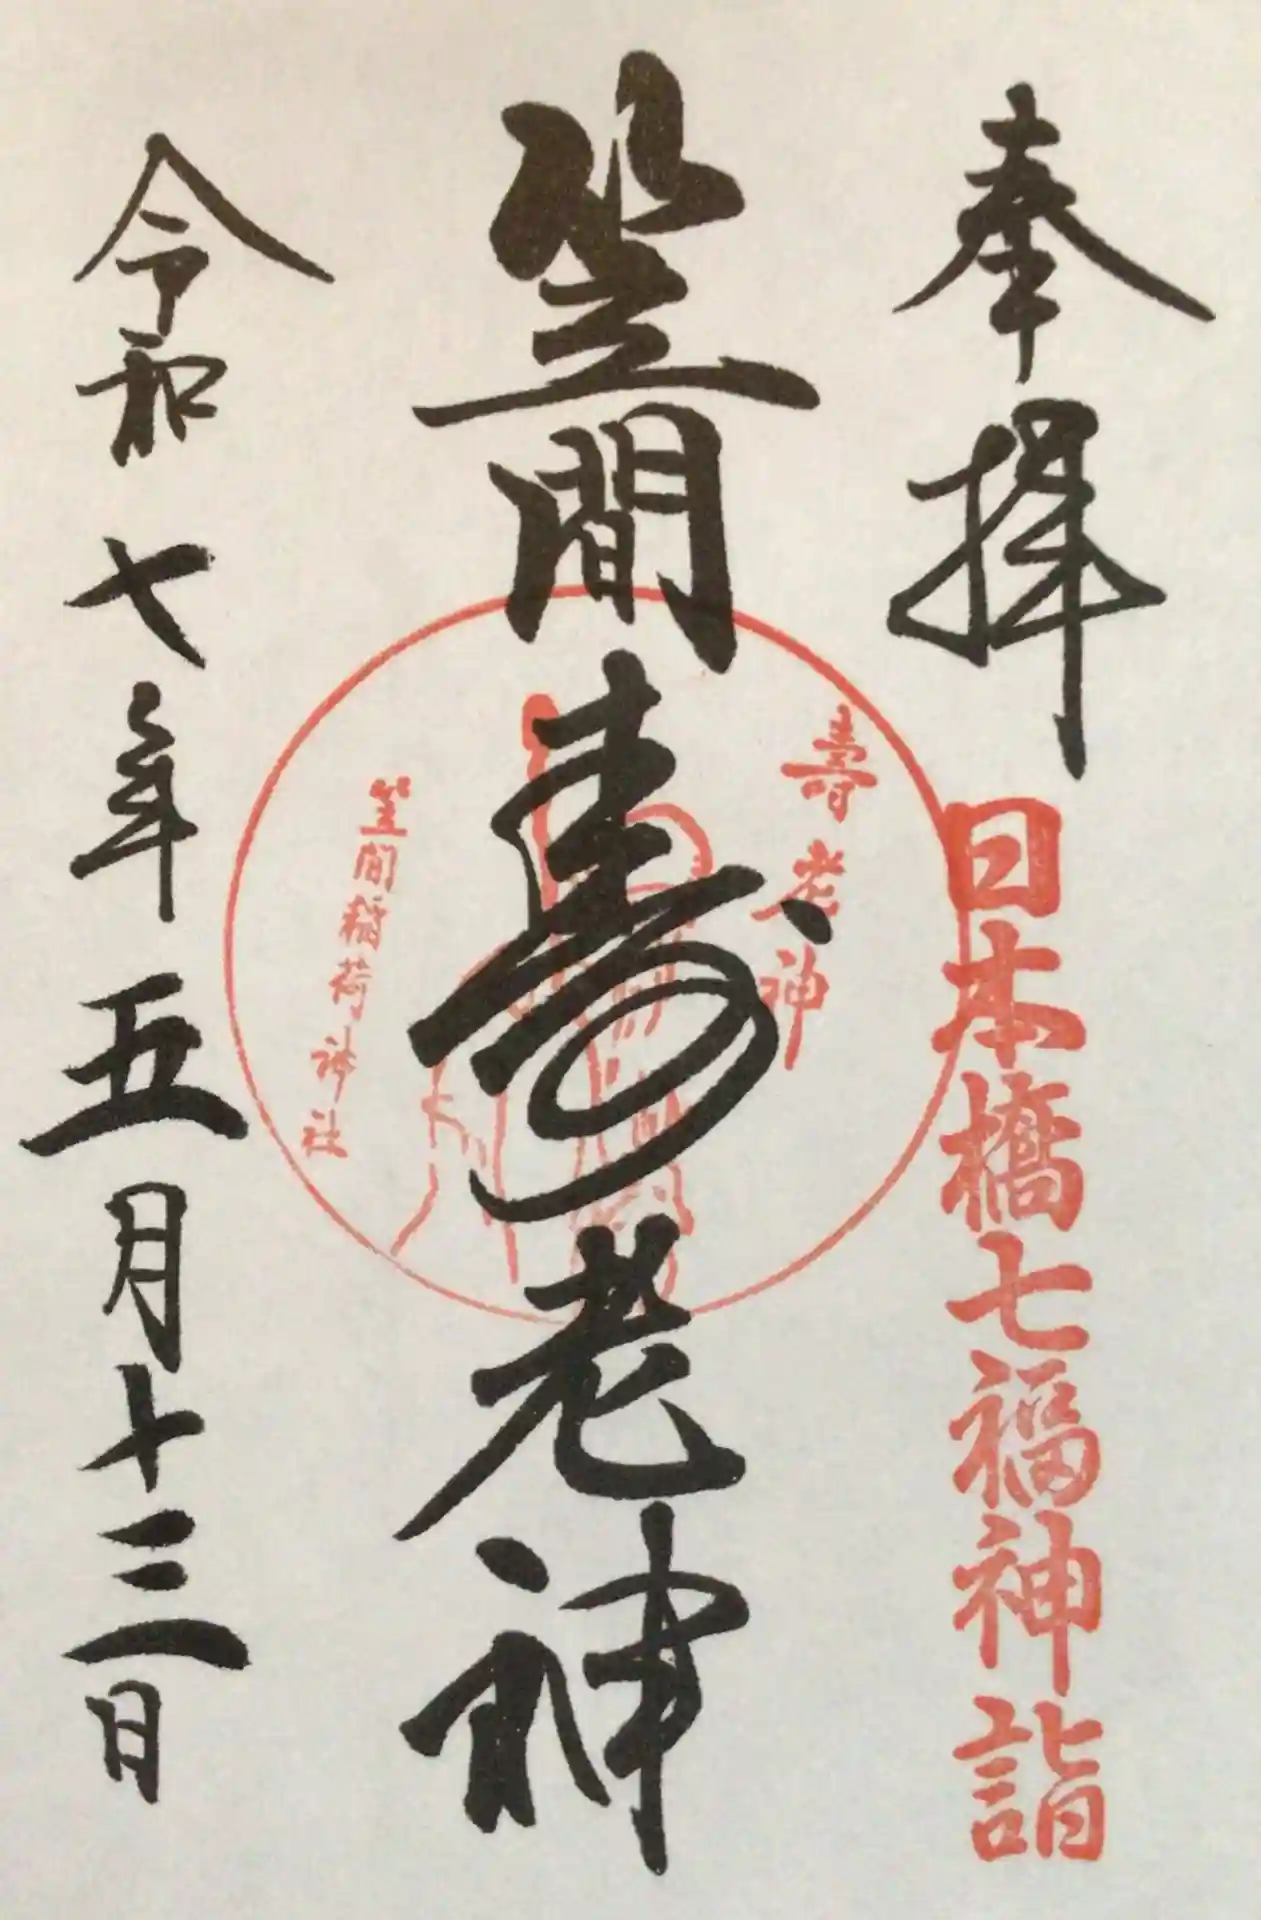 奉拝
日本橋七福神詣
笠間寿老神
壽老神
笠間稲荷神社
令和七年五月十三日